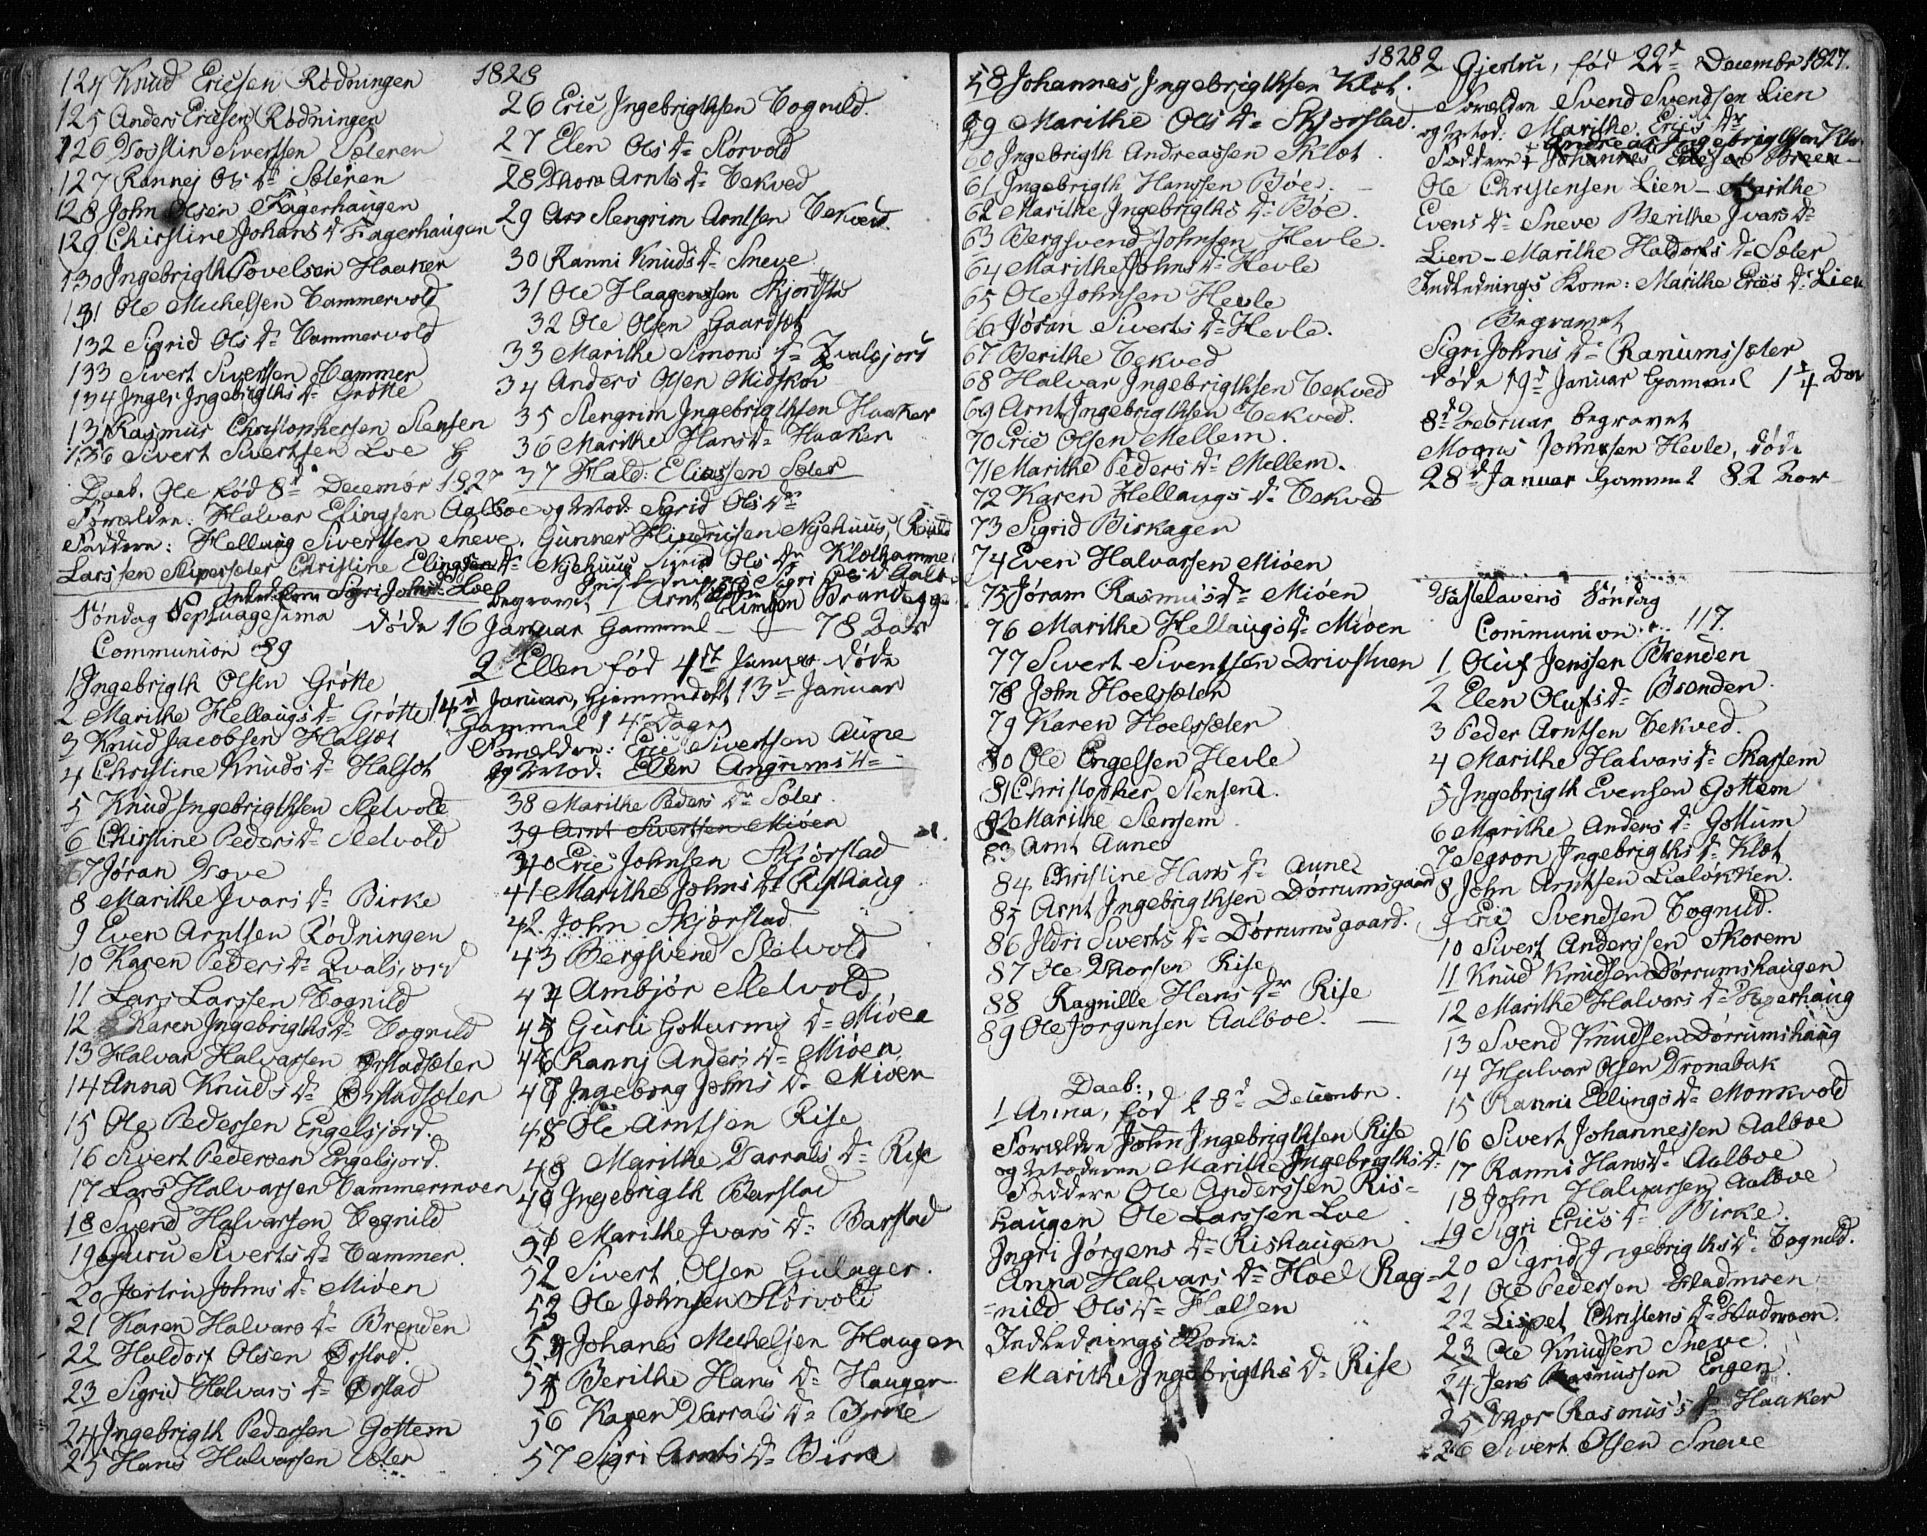 1828
124 Knud Ericsen Rødningen
125 Anders Ericsen Rødningen
126 Sivertsen Sæteren
127 Rannej Ols Dr Sæteren
128 John Olsen Fagerhaugen
129 Christine Johans Dr Fagerhaugen
130 Ingebrigth Povelsen Haaker
131 Ole Michelsen Tammervold
132 Sigrid Ols Dr Tammervold
133 Sivert Sivertsen Hammer
134 Inger Ingebrigths Dr Grøtte
135 Rasmus Christophersen Stensen
136 Sivert Sivertsen Loe
Daab. Ole fød 8d Decembr 1827
Forældre: Halvar Elingsen Aalboe og Sigrid Ols Dr
Faddere: Hellaug Sivertsen Sneve, Gunner Hindricsen Nyehuus,
Larssen Christine Elingsen Dr Nyehuus Sigrid Ols Dr Klothamme
Sigri Johns Loe
Søndag Septuagesima
Communion 89
1 Ingebrigth Olsen Grøtte
2 Marithe Hellaugs Dr Grøtte
3 Knud Jacobsen Halsøt
4 Christine Knuds Dr Halsøt
5 Knud Ingebrigthsen Sletvold
6 Christine Peders Dr Sletvold
7 Jøran
8 Marithe Ivars Dr Birke
9 Even Arntsen Rødningen
10 Karen Peders Dr
11 Lars Larssen Tognild
12 Karen Ingebrigths Dr Tognild
13 Halvar Halvarsen Ørstadsæter
14 Anna Knuds Dr Ørstadsæter
15 Ole Pedersen Engelsjord.
16 Sivert Pedersen Engelsjord.
17 Lars Halvarsen Tammermoen
18 Svend Halvarsen Tognild
19 Guru Siverts Dr Tammer.
20 Jertru Johns Dr Miøen
21 Karen Halvars Dr Brenden
22 Haldor Olsen Ørstad.
23 Sigrid Halvars Dr Ørstad
24 Ingebrigth Pedersen Gottem
25 Hans Halvarsen Sæter
26 Eric Ingebrigthsen Tognild.
27 Elen Ols Dr Størvold
28 Thore Arnts Dr Tekved
29 Stengrim Arntsen Tekved.
30 Ranni Knuds Dr Sneve
31 Ole Haagenssen Skjordstad
32 Ole Olsen Gaardsøt
33 Marithe Simons Dr
34 Anders Olsen Midskov
35 Stengrim Ingebrigthsen Haaker
36 Marithe Hans Dr Haaken
37 Hald: Eliassen Sæter
Begravet 1 Arnt Elingsen Brandegge
døde 16 Januar Gammel — 78 Aar
2 Ellen fød 4de Januar døde
14d Januar, hjemmedøbt 13d Januar
Gammel 14 Dager
Forældre: Eric Sivertsen Aune
og Ellen Angrims Dr
38 Marithe Peders Dr Sæter.
39 Arnt Sivertsen Miøen
40 Eric Johnsen Skjørstad
41 Marithe Johns Dr Rishaug
42. John Skjørstad
43 Bergsvend Sletvold
44 Ambjør Sletvold
45 Gurli Gotturms Dr Miøen
46 Rannj Anders Dr Miøen
47 Ingeborg Johns Dr Miøen
48 Ole Arntsen Rise
48 Marithe Dr Rise
49 Ingebrigth Barstad
51 Marithe Ivars Dr Barstad
52 Sivert Olsen Gulager.
53 Ole Johnsen Størvold
54 Johanes Michelsen Haugen
55 Berithe Hans Dr Haugen
56 Karen Dr Birke
57 Sigri Arnts Dr Birke
1828
58 Johannes Ingebrigthsen Klot.
59 Marithe Ols Dr Skjørstad.
60 Ingebrigth Andreassen Kløt.
61 Ingebrigth Hanssen Bøe.
62 Marithe Ingebrigths Dr Bøe.
63 Bergsvend Johnsen Hevle.
64 Marithe Johns Dr Hevle
65 Ole Johnsen Hevle
66 Jøran Siverts Dr Hevle.
67 Berithe Tekved
68 Halvar Ingebrigthsen Tekved
69 Arnt Ingebrigthsen Tekved.
70 Eric Olsen Mellem.
71 Marithe Peders Dr Mellem.
72 Karen Hellaugs Dr Tekved
73 Sigrid Birkagen
74 Even Halvarsen Miøen
75 Jøram Rasmus Dr Miøen
76 Marithe Hellaugs Dr Miøen
77 Sivert Sivertsen Drivstuen
78 John Hoelssæter
79 Karen Hoelssæter
80 Ole Engelsen Hevle
81 Christopher Stensen.
82 Marithe Stensem
83 Arnt Aune
84 Christine Hans Dr Aune
85 Arnt Ingebrigthsen Dørrumsgaard
86 Ildri Siverts Dr Dørrumsgaard.
87 Ole Thorsen Rise
88 Ragnille Hans Dr Rise
89 Ole Jørgensen Aalboe.
Daab:
1 Anna, fød 28d Decembr.
Forældre John Ingebrigthsen Rise
og Marithe Ingebrigths Dr
Faddere Ole Anderssen Ris-
haugen Ole Larssen Loe
Ingri Jørgens Dr Rishaugen
Anna Halvars Dr Hoel Rag-
-nild Ols Dr Halsen
Indlednings Kone:
Marithe Ingebrigths Dr Rise
2 Gjertru, fød 22d Decembr 1827.
Forældre Svend Svendsen Lien
og Marithe Erics Dr
Andreas Ingebrigthsen
Faddere: Johannes
Ole Christensen Lien — Marithe
Evens Dr Sneve Berithe Ivars Dr
Lien — Marithe Haldors Dr Sæter
Indlednings Kone: Marithe Erics Dr Lien
Begravet
Sigri Johns Dr Ranumssæter
døde 19d Januar Gammel 1 1/4 Aar
8d Februar begravet
Mogns Johnssen Hevle, døde
28d Januar Gammel 82 Aar
Fastelavens Søndag
Communion .. 117.
1 Oluf Jenssen Brenden
2 Elen Olufs Dr Brenden.
3 Peder Arntsen Tekved.
4 Marithe Halvars Dr Skarsem
5 Ingebrigth Evensen Gottem
6 Marithe Anders Dr Gottum
7 Segron Ingebrigths Dr Kløt
8 John Arntsen Lialøkken.
9 Eric Svendsen Tognild.
10 Sivert Anderssen Skorem
11 Knud Knudsen Dørrumshaugen
12 Marithe Halvors Dr Fagerhaug
13 Svend Knudsen Dørrumshaug
14 Halvar Olsen Dronabak
15 Ranni Ellings Dr Monkvold
16 Sivert Johannessen Aalboe
17 Ranni Hans Dr Aalboe
18 John Halvarsen Aalboe
19 Sigri Erics Dr Birke.
20 Sigrid Ingebrigths Dr Tognild.
21 Ole Pedersen Hladmoen
22 Lispet Christens Dr Hladmoen.
23 Ole Knudsen Sneve.
24 Jens Rasmussen Engen
25 Thor Rasmus's Haaker
26 Sivert Olsen Sneve